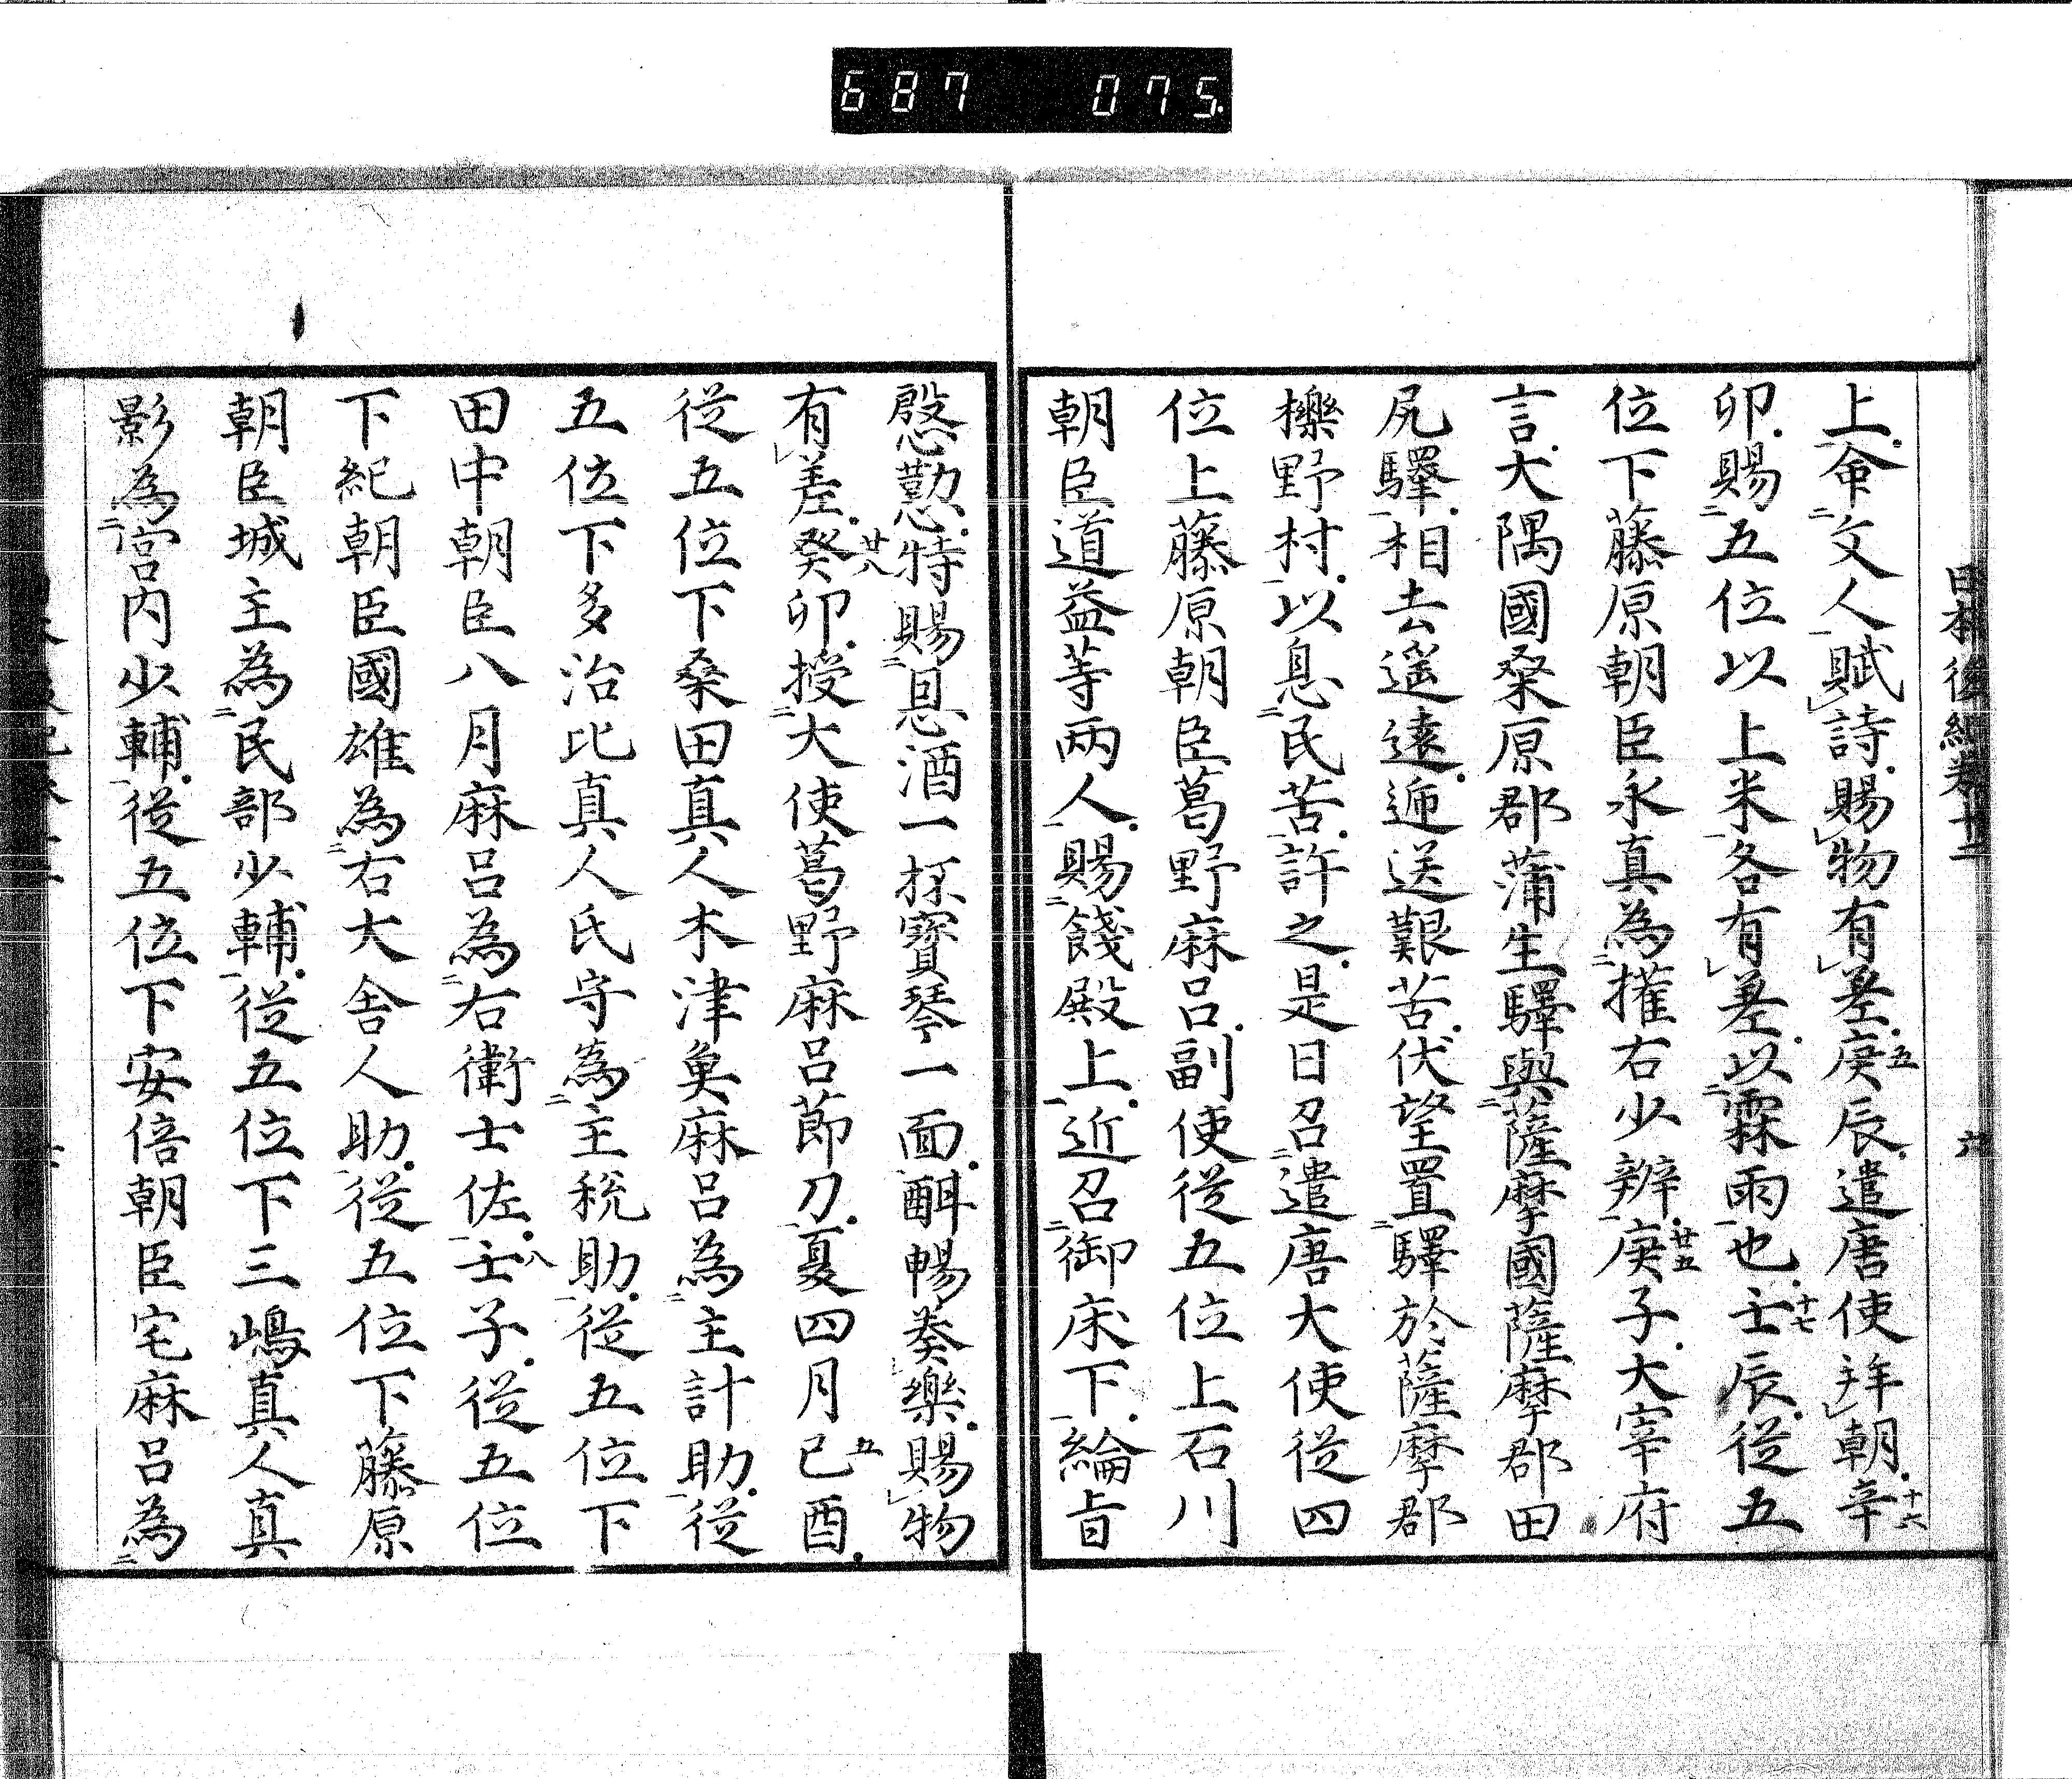 687 075
日本後紀卷十二 六
上命文人賦詩賜物有差庚辰遣唐使拜朝辛
卯賜五位以上米各有差以霖雨也壬辰從五
位下藤原朝臣永真為權右少辨庚子大宰府
言大隅國桑原郡蒲生驛與薩摩國薩摩郡田
尻驛相去遥遠逓送艱苦伏望置驛於薩摩郡
櫟野村以息民苦許之是日召遣唐大使從四
位上藤原朝臣葛野麻呂副使從五位上石川
朝臣道益等兩人賜餞殿上近召御床下綸旨
慇懃特賜恩酒一抔寳琴一面酣暢奏樂賜物
有差癸卯授大使葛野麻呂節刀夏四月己酉
從五位下桑田真人木津魚麻呂為主計助從
五位下多治比真人氏守為主税助從五位下
田中朝臣八月麻呂為右衛士佐壬子從五位
下紀朝臣國雄為右大舎人助從五位下藤原
朝臣城主為民部少輔從五位下三嶋真人真
影為宮内少輔從五位下安倍朝臣宅麻呂為